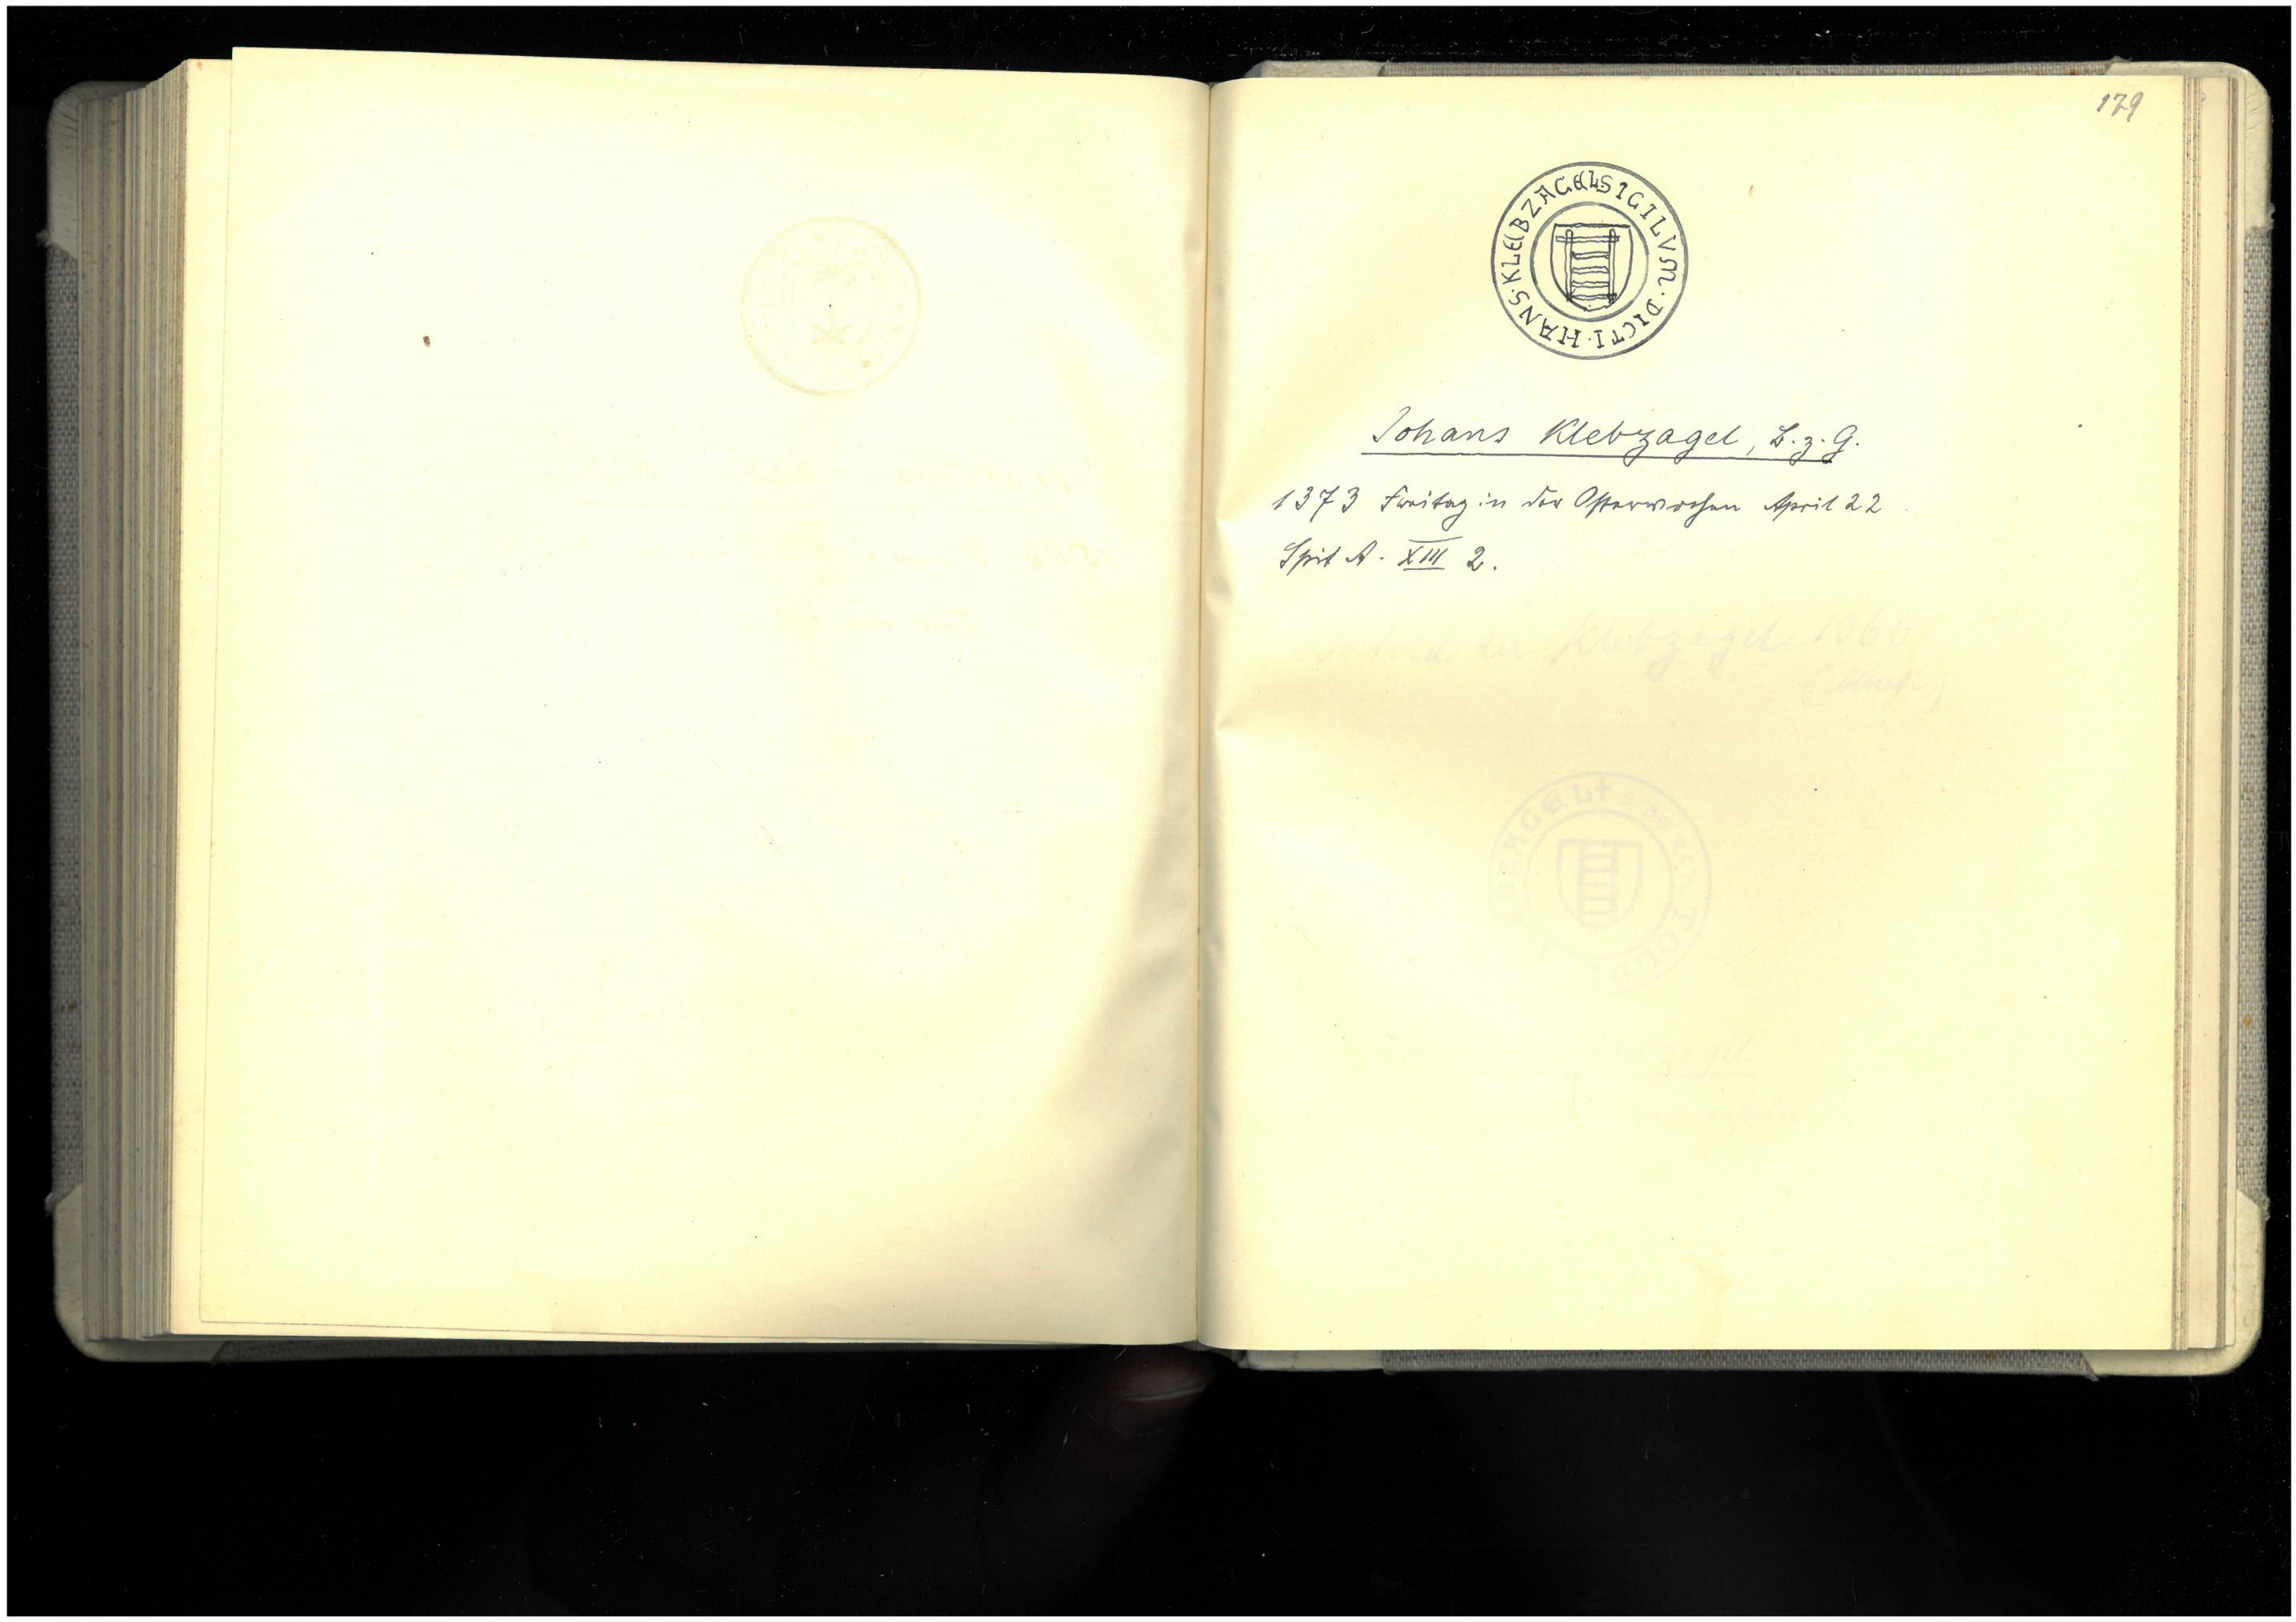 179
SIGILVM · DICTI · HANS · KLEBZAGEL
Johans Klebzagel, B. z. G.
1373 Freitag in der Osterwochen April 22
Spit A. XIII 2.
Klebzagel 1366